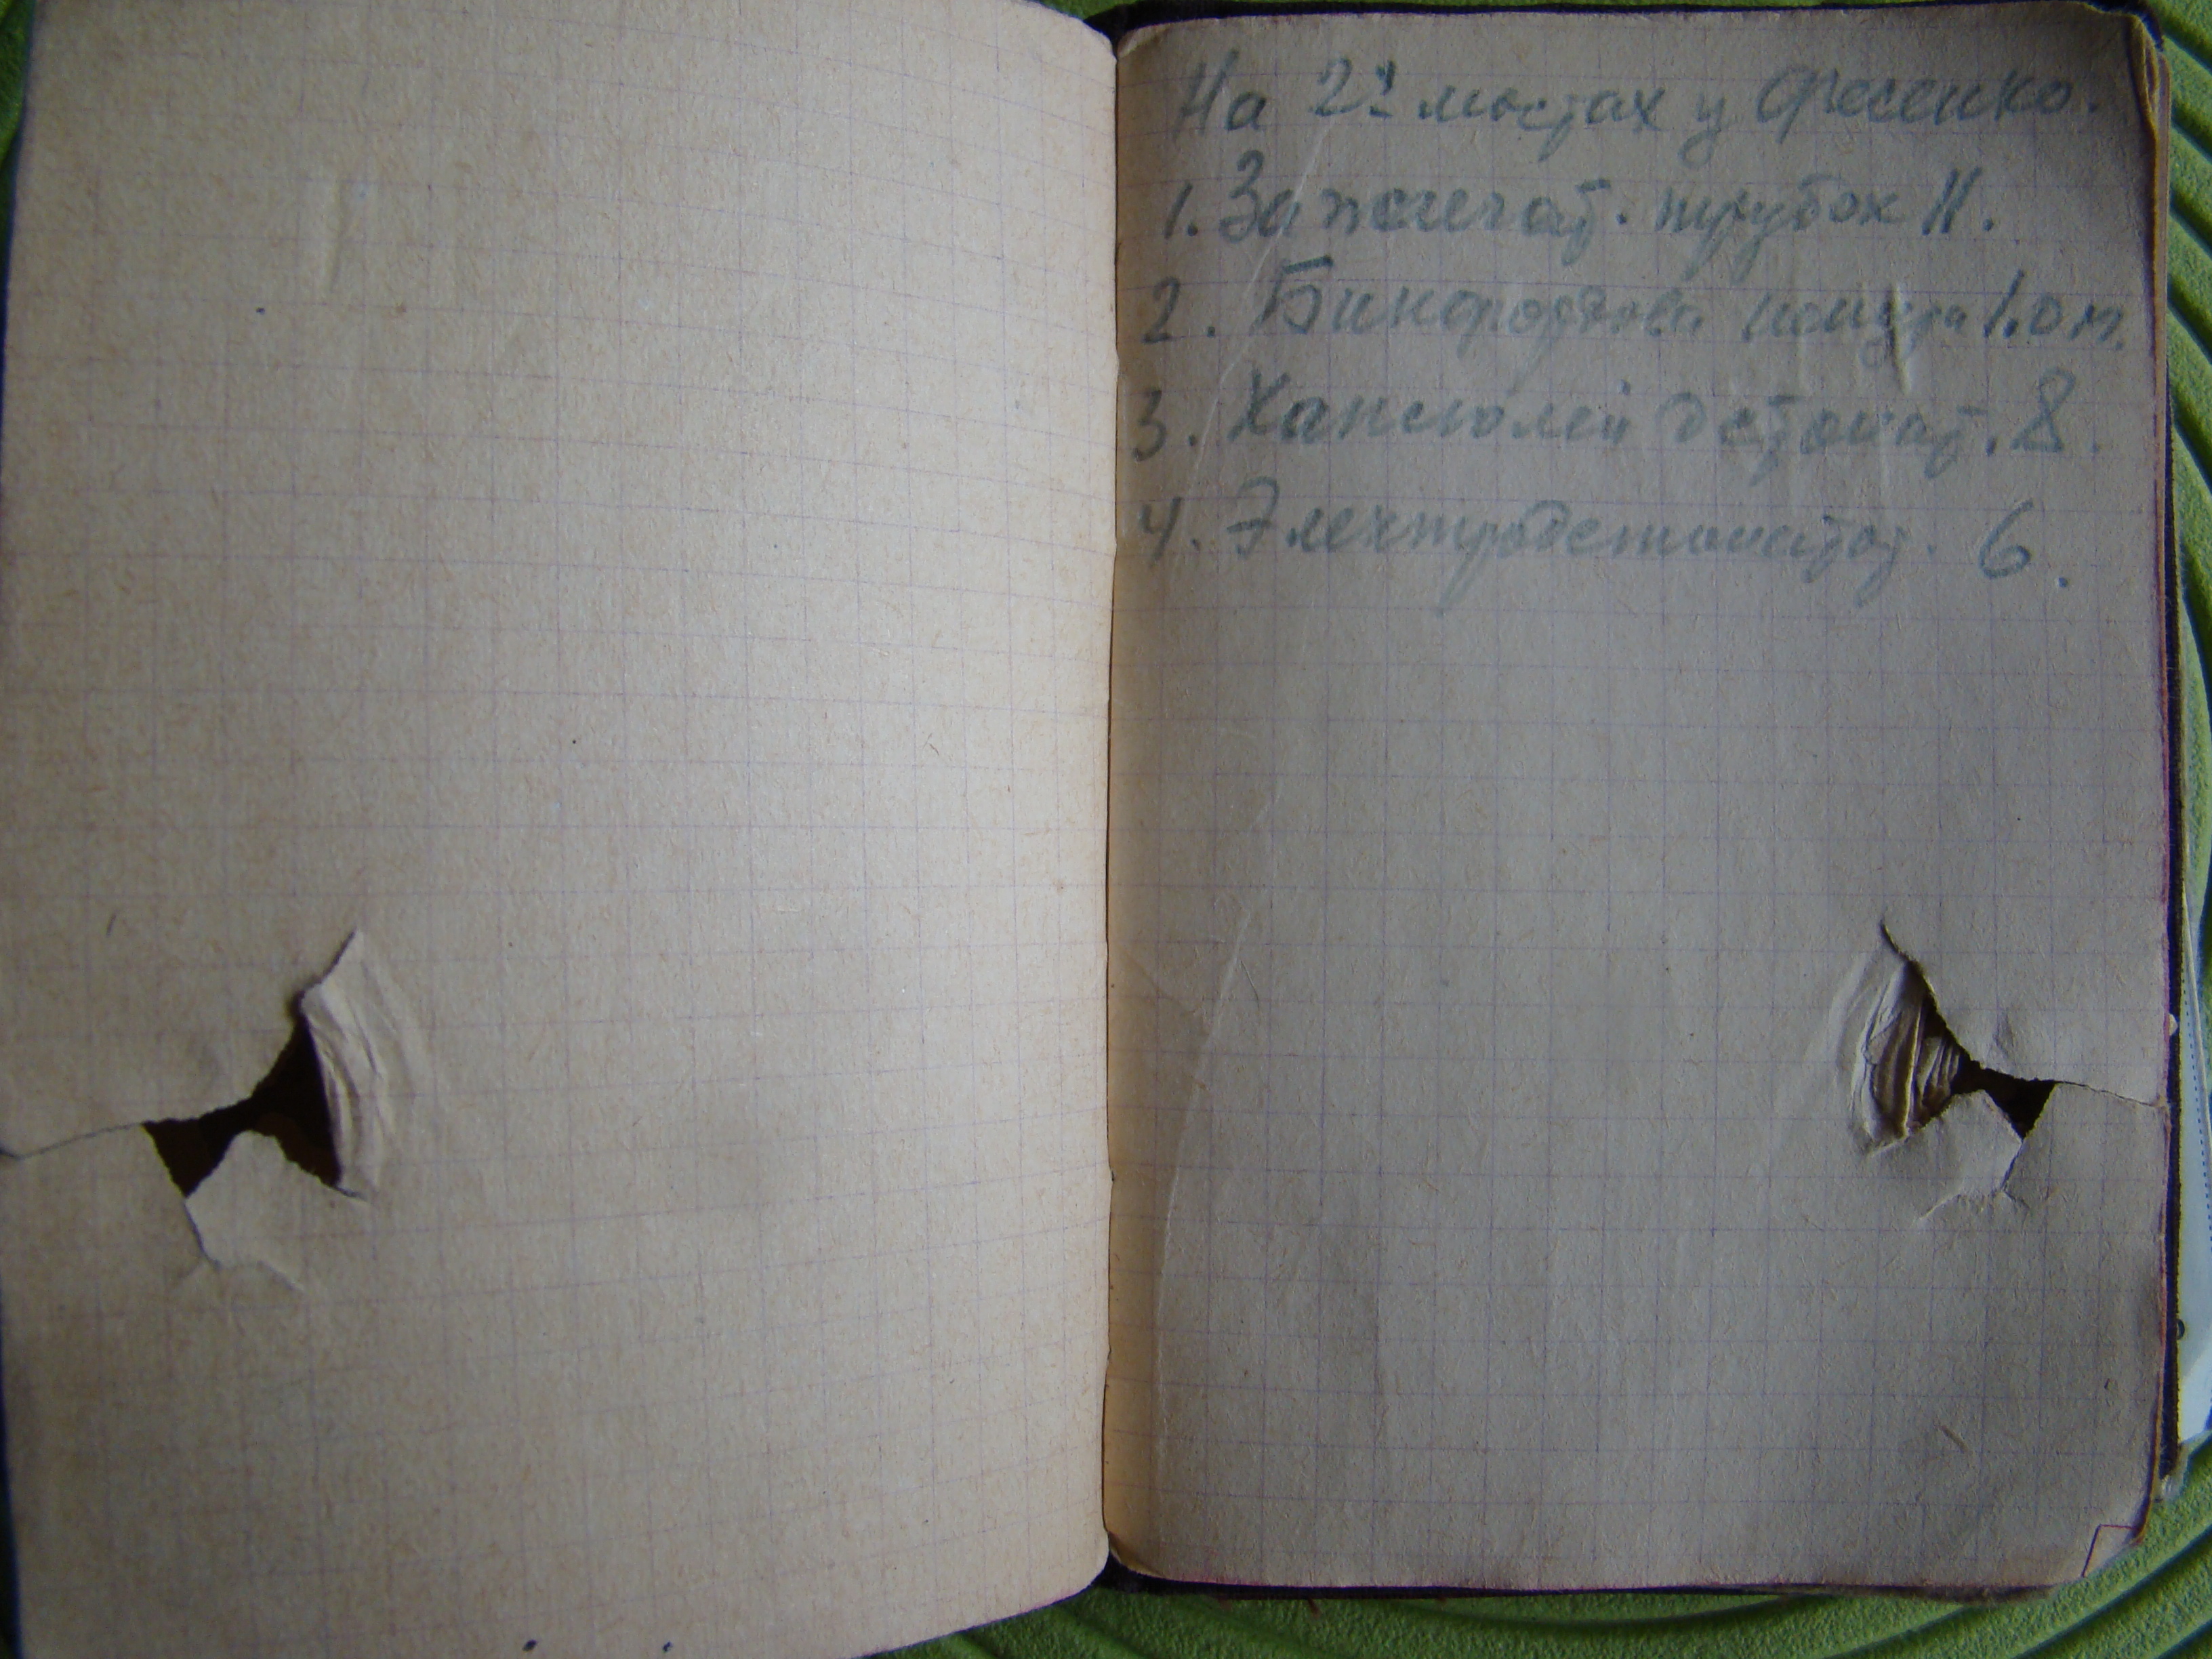 На 2х мостах у Фесенко.
1. Зажигат. трубок 11.
2. Бикфордова шнура 1.0 м.
3. Капсюлей детонат. 8.
4. Электродетонатор. 6.